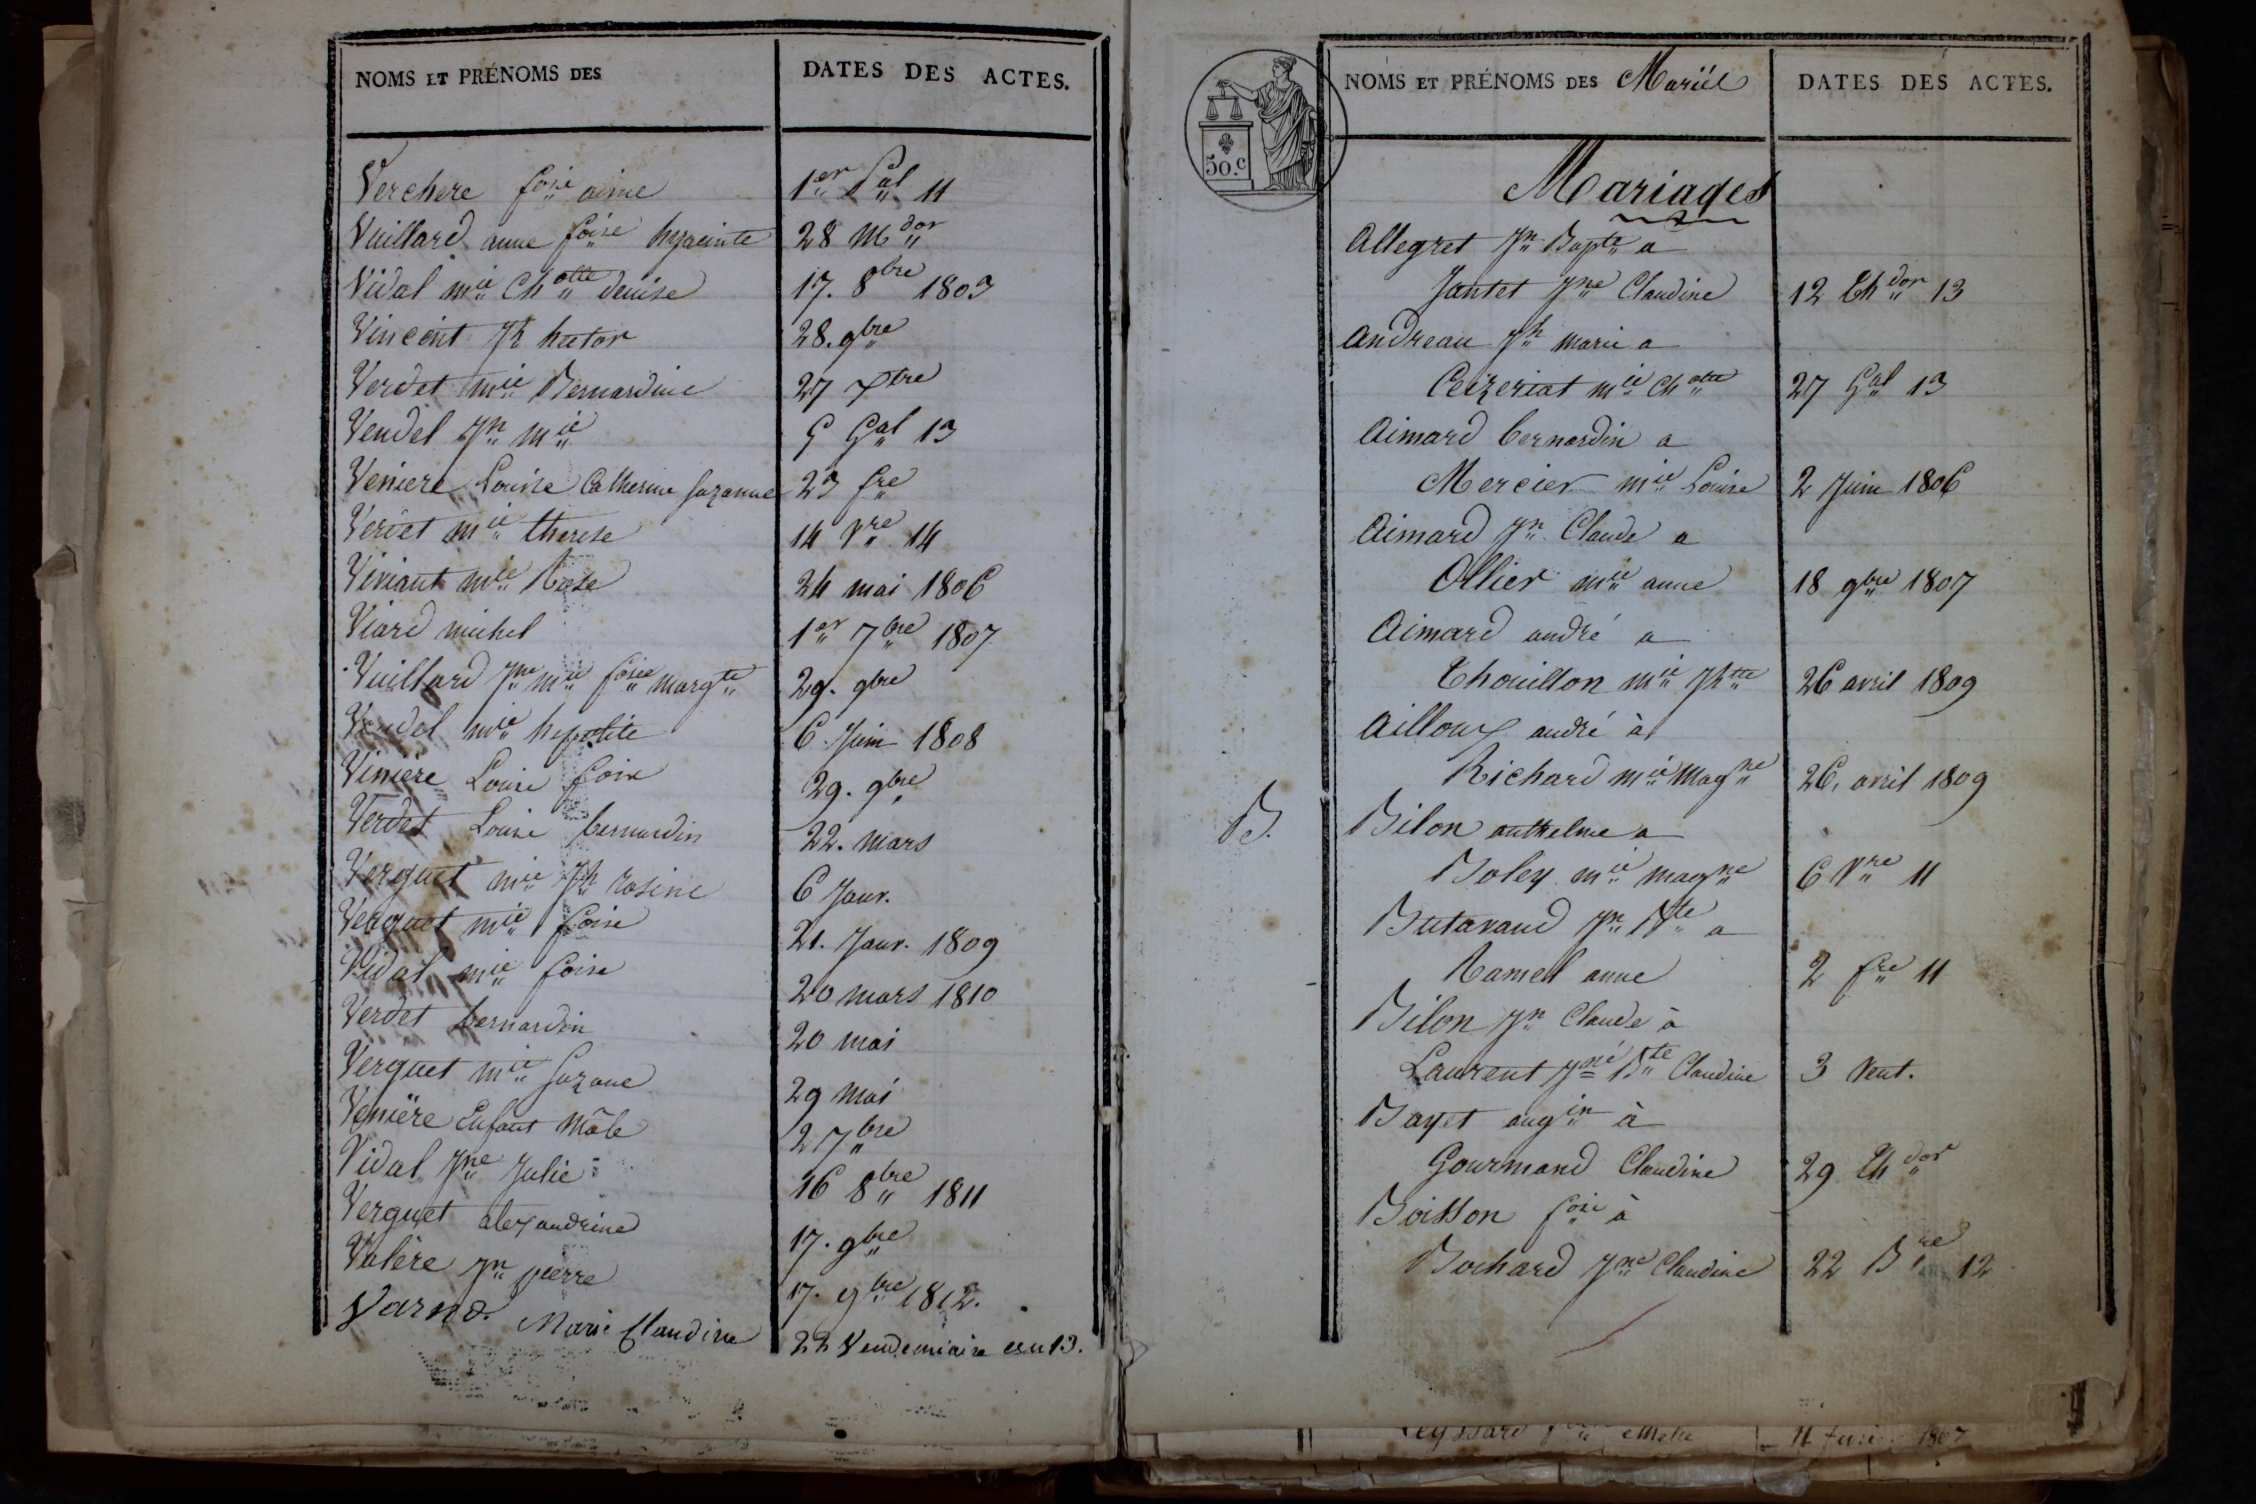 NOMS ET PRÉNOMS DES DATES DES ACTES.
Verchere foise aimé 1er 11
Vuillard anne foise hyacinte 28 Mdor
Vidal mie Chotte denise 17. 8bre 1803
Vincent Jh hector 28. 9bre
Verdet mie Bernardine 27 Xbre
Vendel Jn mie Gal 13
Veniere Louise Catherine Suzanne 23 fre
Veriet mie therese 14 Vre 14
Viriant mie Rose 24 mai 1806
Viard michel 1er 7bre 1807
Vuillard Jne mie foise margte 29. 9bre
Vendel mie hypolite 6 Juin 1808
Viniere Louise foise 29. 9bre
Verdet Louise bernardin 22. mars
Verguet mie Jh rosine 6 Janr.
Verguet mie foise 21. Janr. 1809
Vidal mie foise 20 mars 1810
Verdet bernardin 20 mai
Verguet mie Suzane 29 mai
Venière Enfant Mâle 2 7bre
Vidal Jne Julie 16 8bre 1811
Verguet alexandrine 17. 9bre
Valère Jn pierre 17. 9bre 1812.
Marie Claudine 22 Vendemiaire an 13.
50.c
NOMS ET PRÉNOMS DES Mariés DATES DES ACTES.
Mariages
Allegret Jn Bapte a
Jantet Jne Claudine 12 thdor 13
Andreau Jh marie a
Ceizeriat mie Chotte 27 Gal 13
Aimard bernardin a
Mercier mie Louise 2 Juin 1806
Aimard Jn Claude a
Ollier mie anne 18 9bre 1807
Aimard andré a
Thouillon mie Jhtte 26 avril 1809
Ailloux andré à
Richard mie Magne 26. avril 1809
B. Bilon anthelme a
Boley mie magne 6 Vre 11
Butavand Jn Bte a
Ramel anne 2 fre 11
Bilon Jn Claude à
Laurent Jne Bte Claudine 3 Vent.
Bayet augin à
Gourmand Claudine 29 thdor
Boisson fois à
Bochard Jne Claudine 22 Bre 12
1807